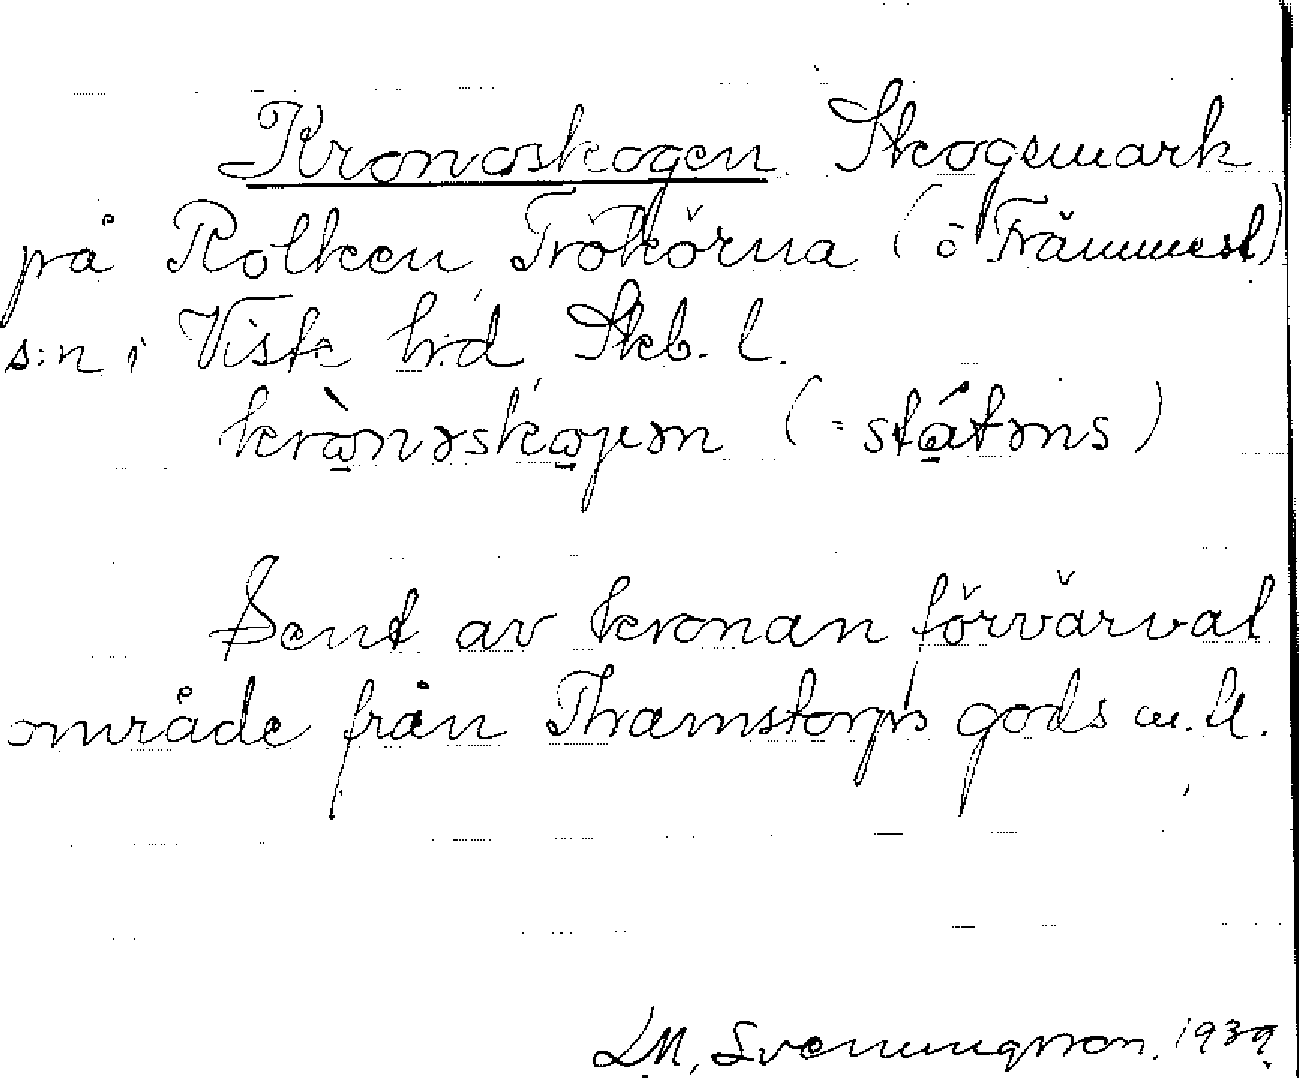 Kronoskogen Skogsmark
på Rolken Trökörna (ö Främmest)
s:n i Viste h:d, Skb. l.
krò̠nəskạjən (= stá̠təns)
Sent av kronan förvärvat
område från Thamstorps gods m.fl.
LM, Svenungsson. 1939.